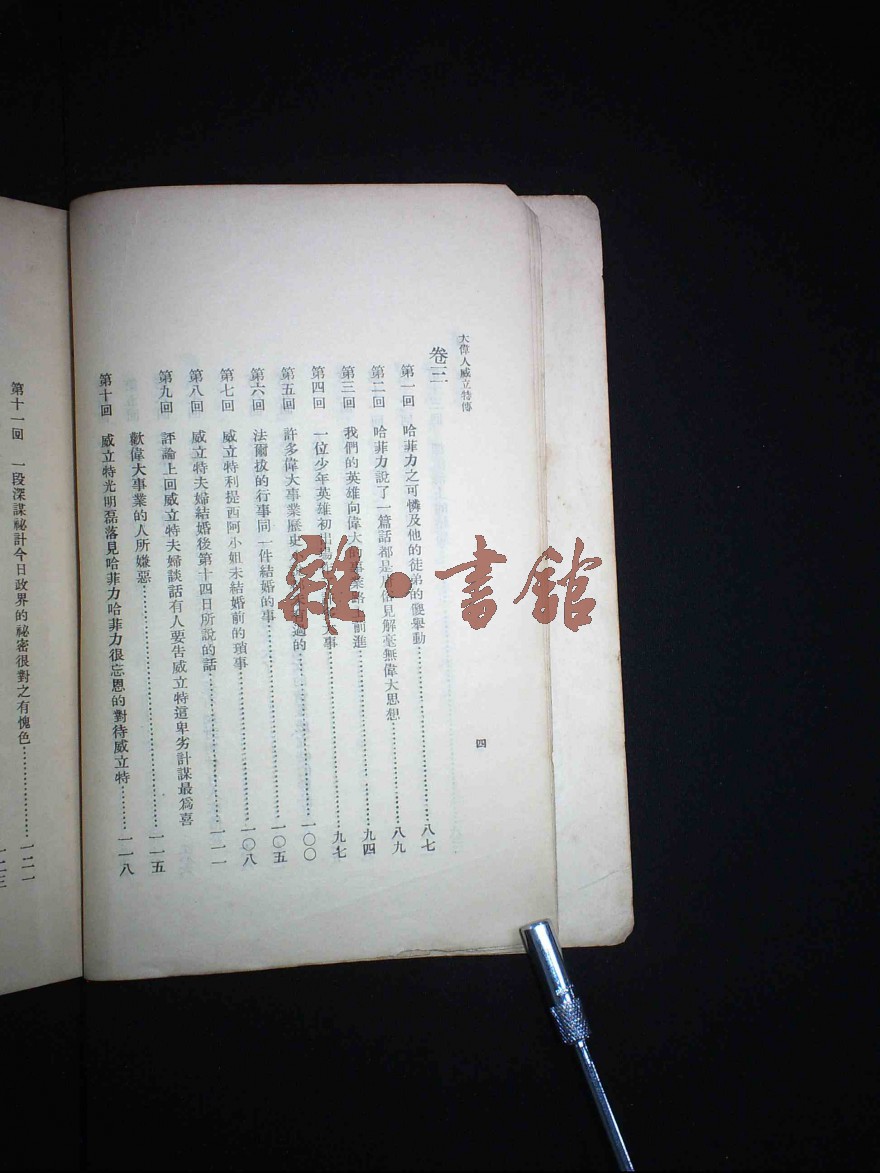 大偉人威立特傳
卷三
第一回 哈菲力之可憐及他的徒弟的儍擧動……八七
第二回 哈菲力說了一篇話都是 俗見解毫無偉大思想……八九
第三回 我們的英雄向偉大的事業路上前進……九四
第四回 一位少年英雄初出 事……九七
第五回 許多偉大事業歷史 的……一〇〇
第六回 法爾拔的行事同一件結婚的事……一〇五
第七回 威立特利提西阿小姐未結婚前的瑣事……一〇八
第八回 威立特夫婦結婚後第十四日所說的話……一一一
第九回 評論上回威立特夫婦談話有人要告威立特這卑劣計謀最爲喜
歡偉大事業的人所嫌惡……一一五
第十回 威立特光明磊落見哈菲力哈菲力很忘恩的對待威立特……一一八
四
第十一回 一段深謀祕計今日政界的祕密很對之有愧色……一二一
一二三
雜·書館